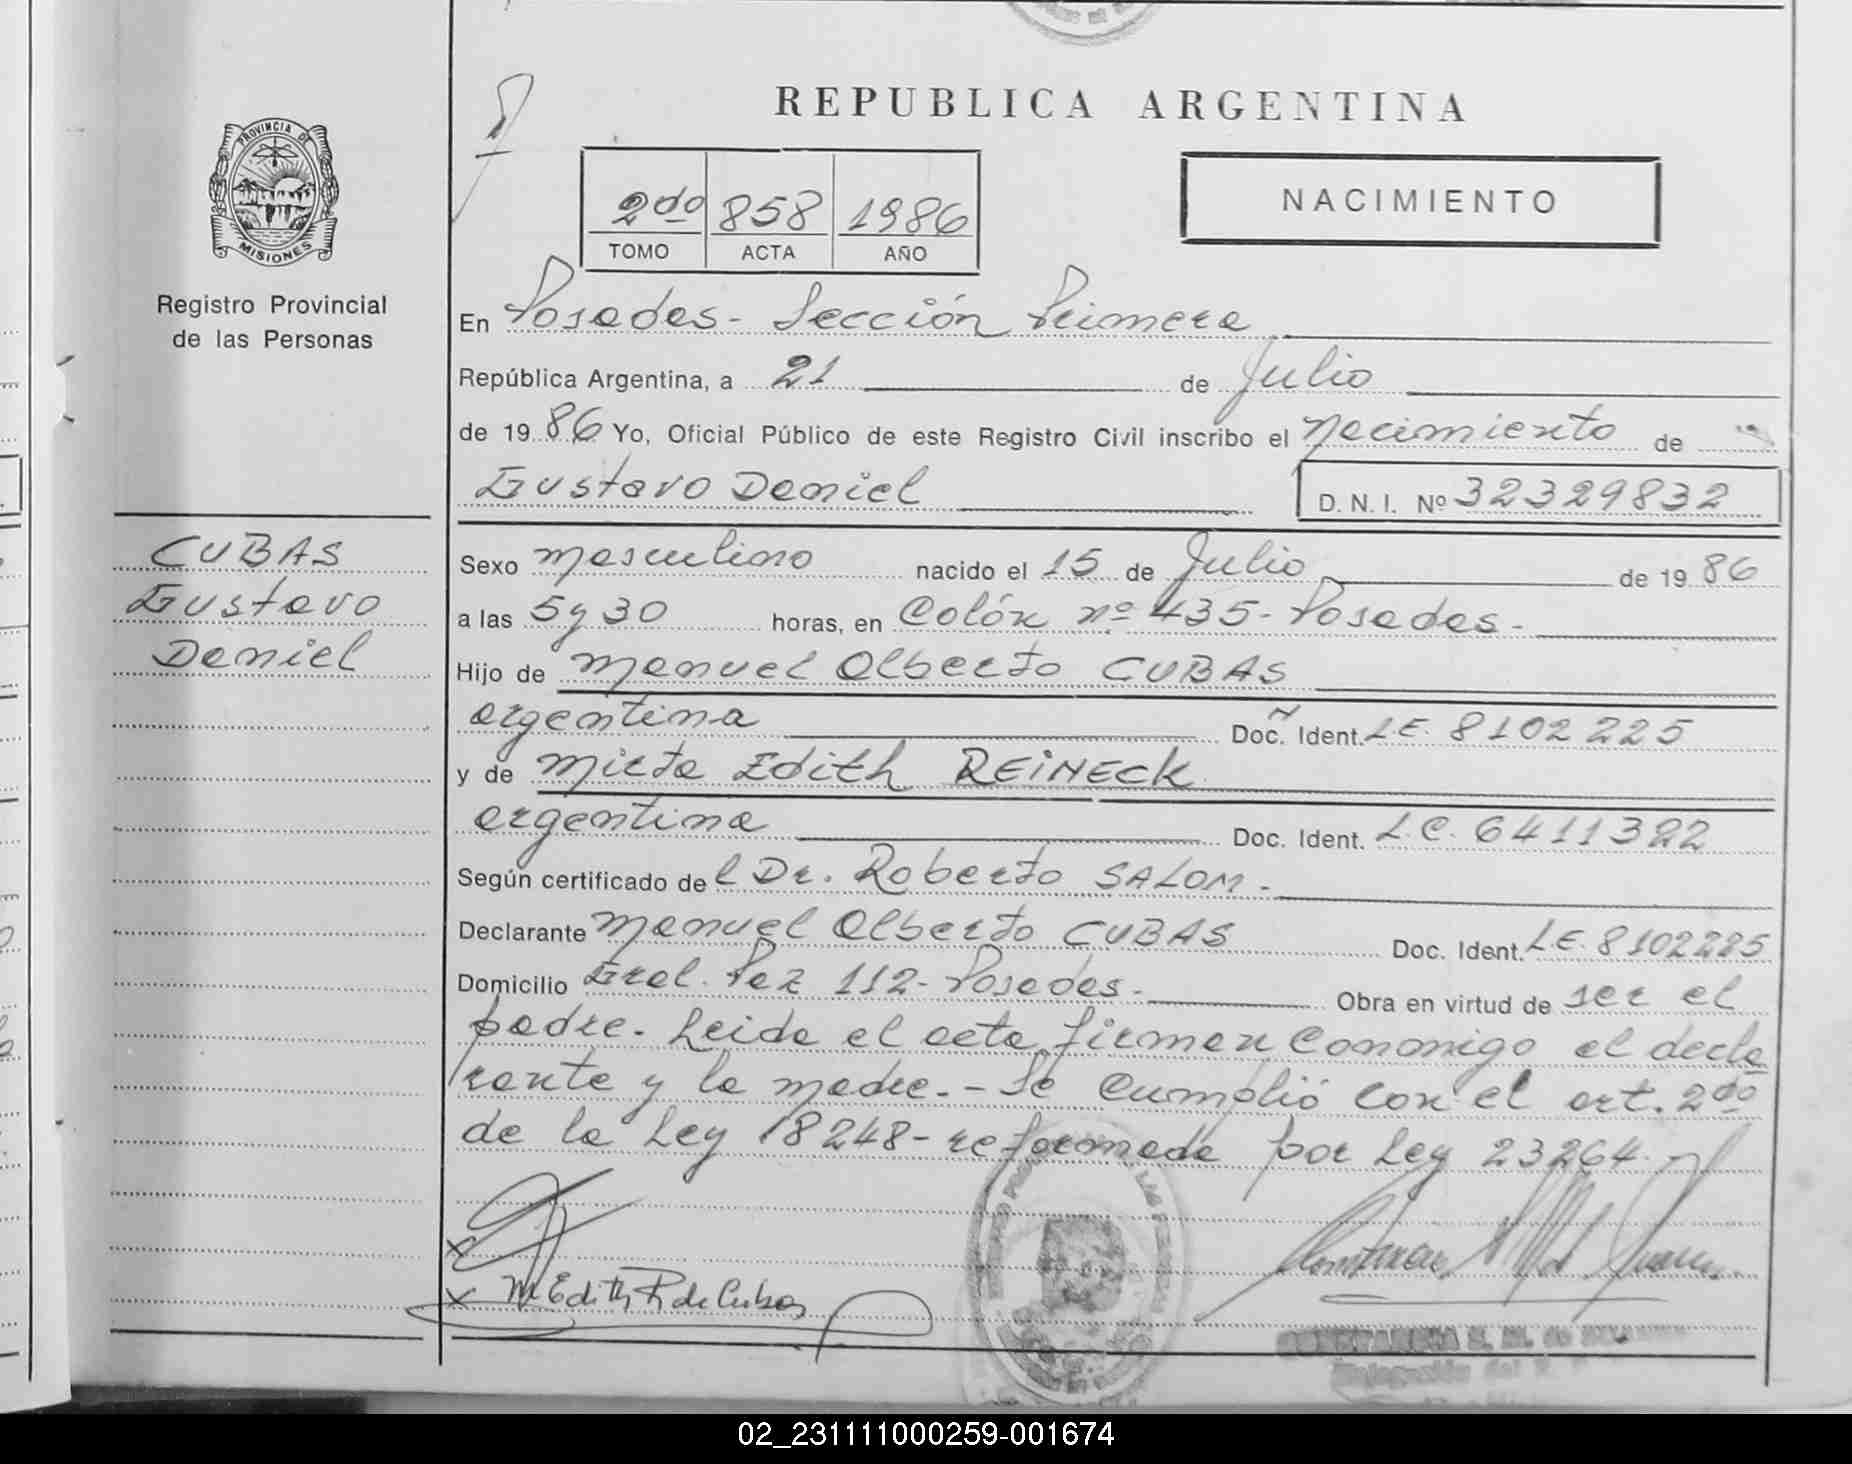 REPUBLICA ARGENTINA
PROVINCIA DE
MISIONES
Registro Provincial
de las Personas
2do 858 1986
TOMO ACTA AÑO
NACIMIENTO
En Posadas - Sección Primera
República Argentina, a 21 de Julio
de 1986 Yo, Oficial Público de este Registro Civil inscribo el Nacimiento de
Gustavo Daniel
D. N. I. Nº 32329832
CUBAS
Gustavo
Daniel
Sexo masculino nacido el 15 de Julio de 1986
a las 5 y 30 horas, en Colón nº 435 - Posadas -
Hijo de Manuel Alberto CUBAS
argentina Doc. Ident. L.E. 8102225
y de Mirta Edith REINECK
argentina Doc. Ident. L.C. 6411322
Según certificado del Dr. Roberto SALOM -
Declarante Manuel Alberto CUBAS Doc. Ident. L.E. 8102225
Domicilio Gral. Paz 112 - Posadas - Obra en virtud de ser el
padre. - Leida el acta firman Conomigo el decla
rante y la madre. - Se Cumplió con el art. 2do
de la Ley 18248 - reformada por Ley 23264 -
x
x M Edith R de Cubas
02_231111000259-001674